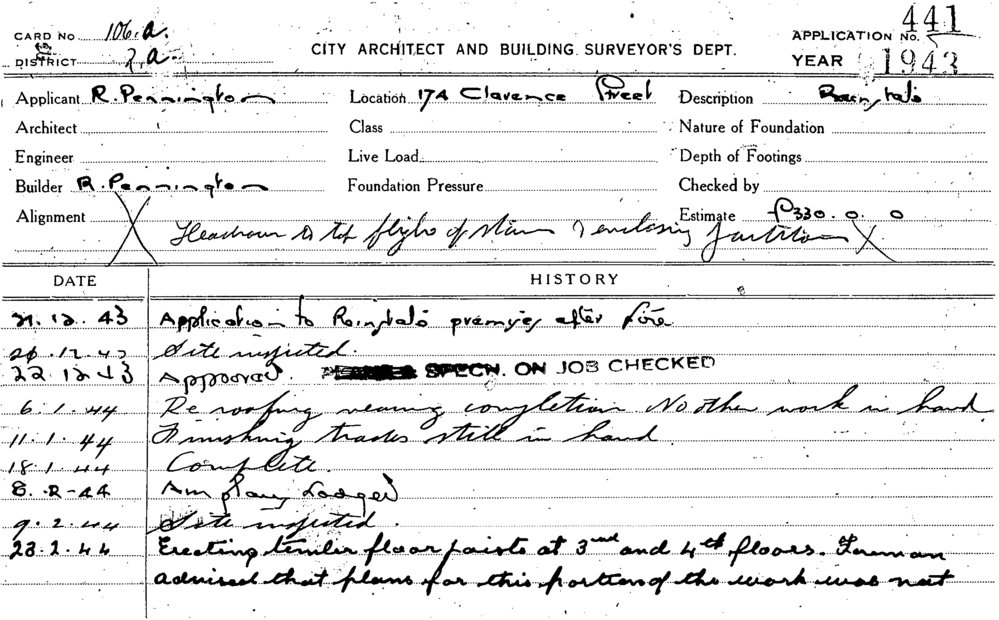 441
CARD No 106.a. APPLICATION No.
DISTRICT 2,a. CITY ARCHITECT AND BUILDING SURVEYOR'S DEPT. YEAR 1943
Applicant R. Pennington Location 174 Clarence Street Description
Architect Class Nature of Foundation
Engineer Live Load Depth of Footings
Builder R. Pennington Foundation Pressure Checked by
Alignment Estimate £330. 0. 0
X flight of stairs & enclosing X
DATE HISTORY
21. 12. 43 Application to premises after fire
.12.43 Site inspected.
22.12.43 Approved SPECN. ON JOB CHECKED
6.1.44 Re roofing nearing completion No other work in hand
11.1.44 Finishing trades still in hand
18.1.44 Complete.
8. 2-44 Am plans Lodged
9.2.44 Site inspected.
23.2.44 Erecting timber floor joists at 3rd and 4th floors. Foreman
advised that plans for this portion of the work was not